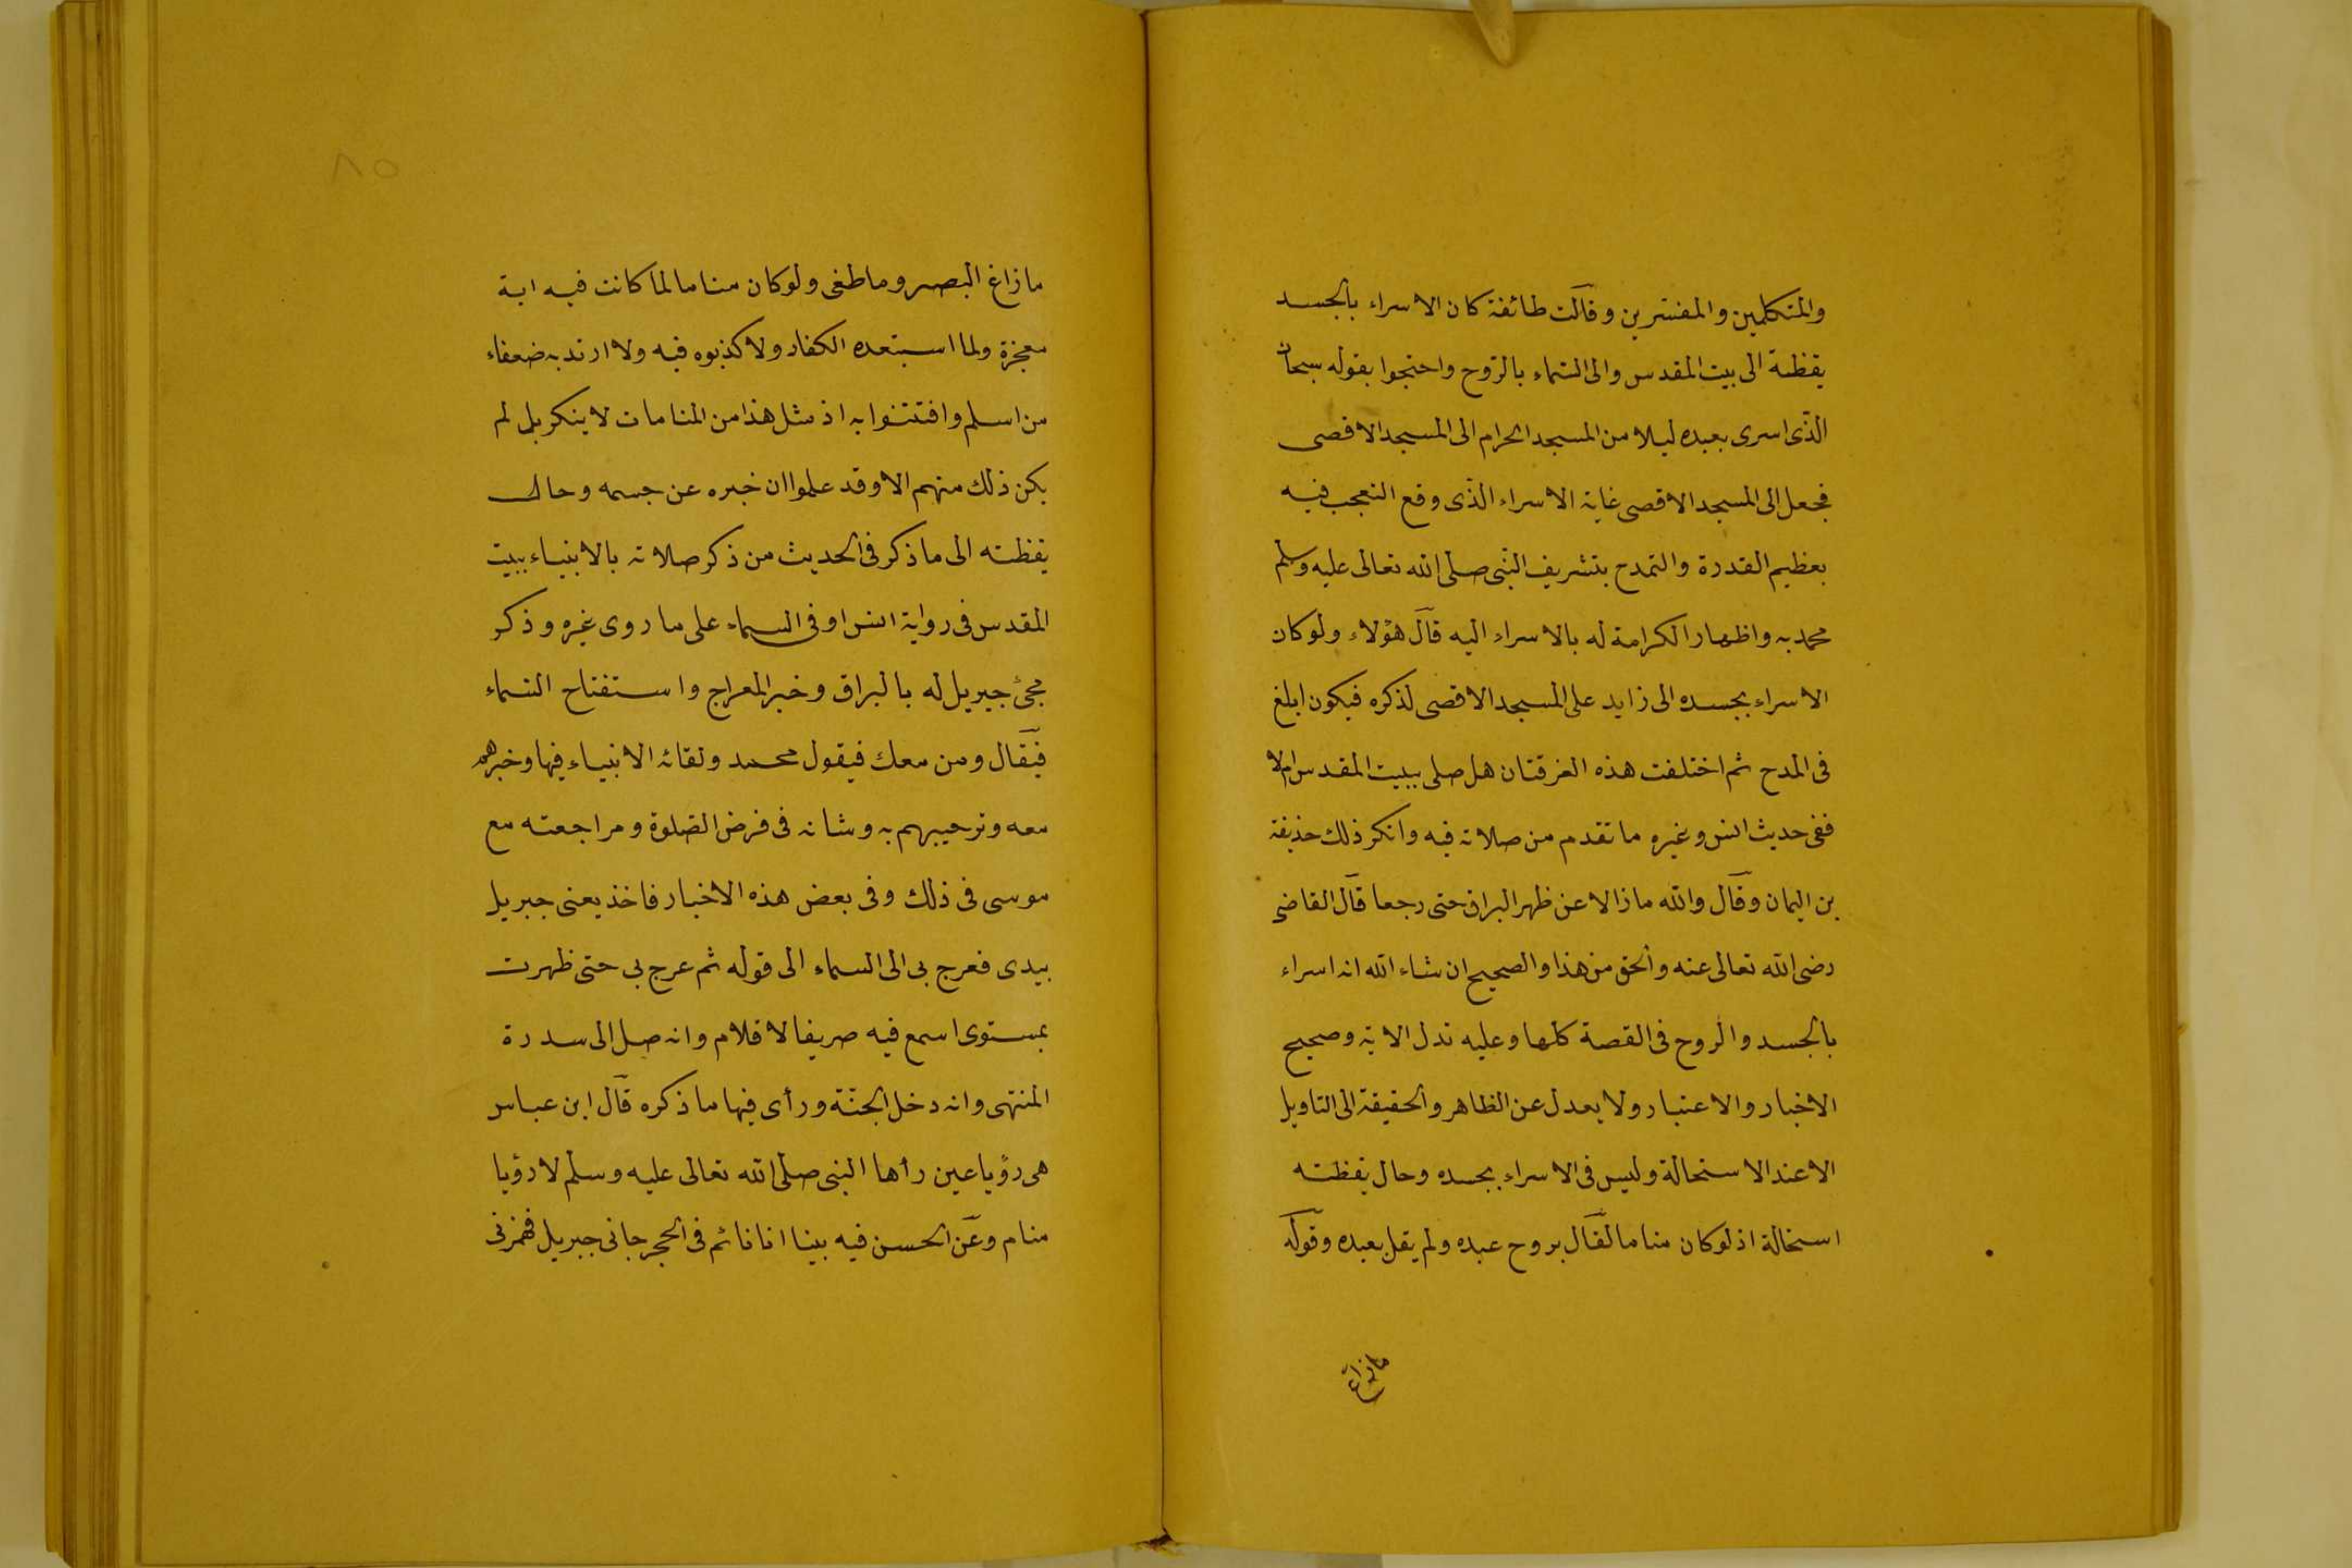 والمتكلمين والمفسرين وقالت طائفة كان الاسراء بالجسد
يقظة الى بيت المقدس والى السماء بالروح واحتجوا بقوله سبحان
الذى اسرى بعبده ليلا من المسجد الحرام الى المسجد الاقصى
فجعل الى المسجد الاقصى غاية الاسراء الذى وقع التعجب فيه
بعظيم القدرة والتمدح بتشريف النبى صلى الله تعالى عليه وسلم
محمد به واظهار الكرامة له بالاسراء اليه قال هؤلاء ولو كان
الاسراء بجسده الى زايد على المسجد الاقصى لذكره فيكون ابلغ
فى المدح ثم اختلفت هذه الفرقتان هل صلى ببيت المقدس ام لا
ففى حديث انس وغيره ما تقدم من صلاته فيه وانكر ذلك حذيفة
بن اليمان وقال والله ما زالا عن ظهر البراق حتى رجعا قال القاضى
رضى الله تعالى عنه والحق من هذا والصحيح ان شاء الله انه اسراء
بالجسد والروح فى القصة كلها وعليه تدل الاية وصحيح
الاخبار والاعتبار ولا يعدل عن الظاهر والحقيقة الى التاويل
الا عند الاستحالة وليس فى الاسراء بجسده وحال يقظته
استحالة اذ لو كان مناما لقال بروح عبده ولم يقل بعبده وقوله
ما زاغ
٨٥
ما زاغ البصر وما طغى ولو كان مناما لما كانت فيه اية
معجزة ولما استبعده الكفار ولا كذبوه فيه ولا ارتد به ضعفاء
من اسلم وافتتنوا به اذ مثل هذا من المنامات لا ينكر بل لم
يكن ذلك منهم الا وقد علموا ان خبره عن جسمه وحال
يقظته الى ما ذكر فى الحديث من ذكر صلاته بالانبياء ببيت
المقدس فى رواية انس او فى السماء على ما روى غيره وذكر
مجئ جبريل له بالبراق وخبر المعراج واستفتاح السماء
فيقال ومن معك فيقول محمد ولقائه الانبياء فيها وخبرهم
معه وترحيبهم به وشانه فى فرض الصلوة ومراجعته مع
موسى فى ذلك وفى بعض هذه الاخبار فاخذ يعنى جبريل
بيدى فعرج بى الى السماء الى قوله ثم عرج بى حتى ظهرت
بمستوى اسمع فيه صريفا لاقلام وانه صل الى سدرة
المنتهى وانه دخل الجنة ورأى فيها ما ذكره قال ابن عباس
هى رؤيا عين رأها النبى صلى الله تعالى عليه وسلم لا رؤيا
منام وعن الحسن فيه بينا انا نائم فى الحجر جانى جبريل فهمزنى